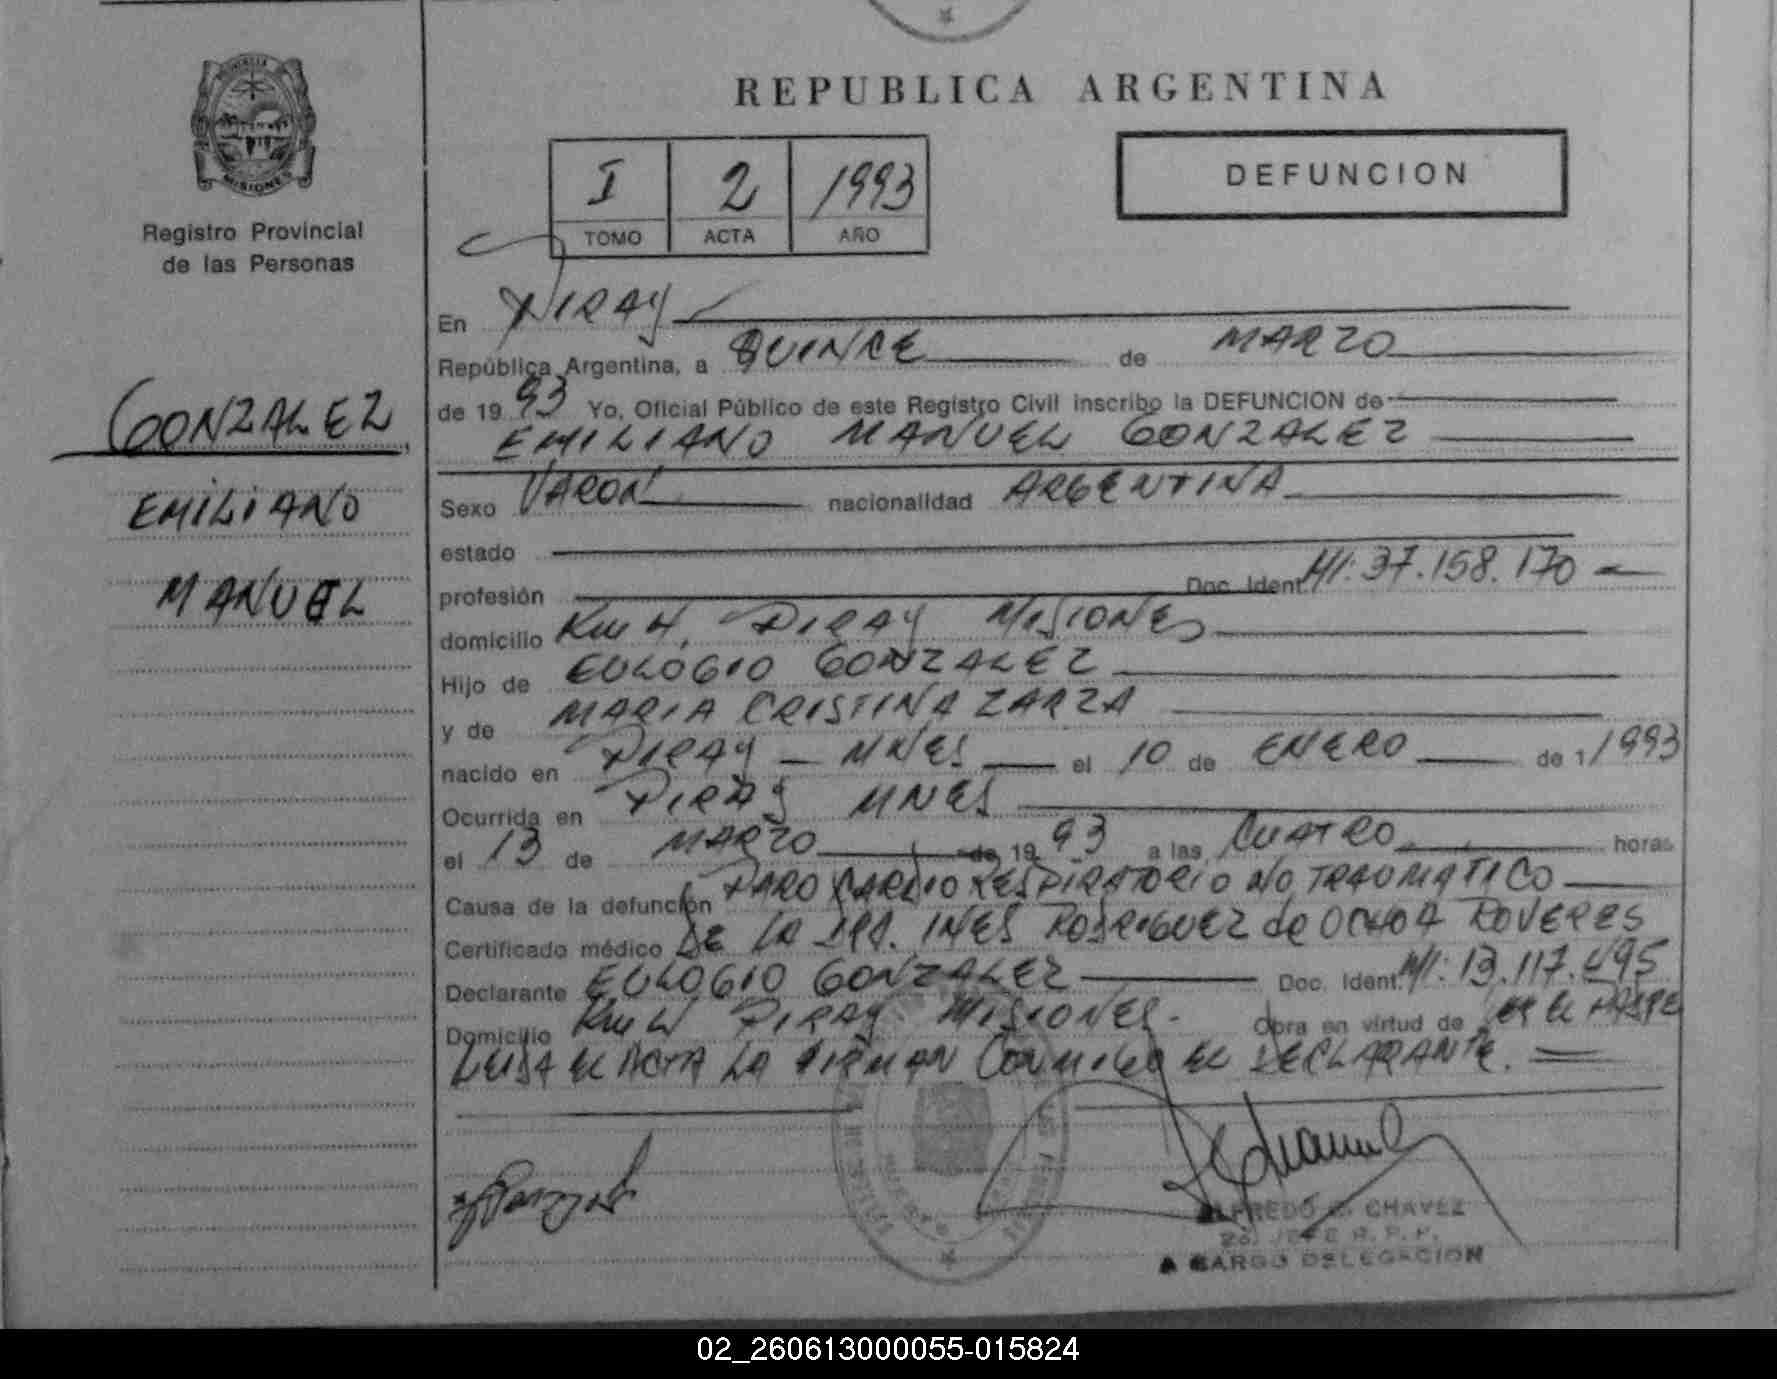 REPUBLICA ARGENTINA
PROVINCIA
MISIONES
Registro Provincial
de las Personas
I 2 1993
TOMO ACTA AÑO
DEFUNCION
GONZALEZ,
EMILIANO
MANUEL
En PIRAY
República Argentina, a QUINCE de MARZO
de 19 93 Yo, Oficial Público de este Registro Civil inscribo la DEFUNCION de
EMILIANO MANUEL GONZALEZ
Sexo VARON nacionalidad ARGENTINA
estado
profesión Doc. Ident. MI: 37.158.170
domicilio Km 4, PIRAY MISIONES
Hijo de EULOGIO GONZALEZ
y de MARIA CRISTINA ZARZA
nacido en PIRAY - MNES el 10 de ENERO de 1/1993
Ocurrida en PIRAY MNES
el 13 de MARZO de 19 93 a las CUATRO horas
Causa de la defunción PARO CARDIO RESPIRATORIO NO TRAUMATICO
Certificado médico DE LA DRA. INES RODRIGUEZ de OCHOA ROVERES
Declarante EULOGIO GONZALEZ Doc. Ident. MI: 13.117.495
Domicilio Km 4 PIRAY MISIONES. Obra en virtud de SER EL PADRE
LEIDA EL ACTA LA FIRMAN CONMIGO EL DECLARANTE.
ALFREDO CHAVEZ
JEFE R. P. P.
A CARGO DELEGACION
02_260613000055-015824